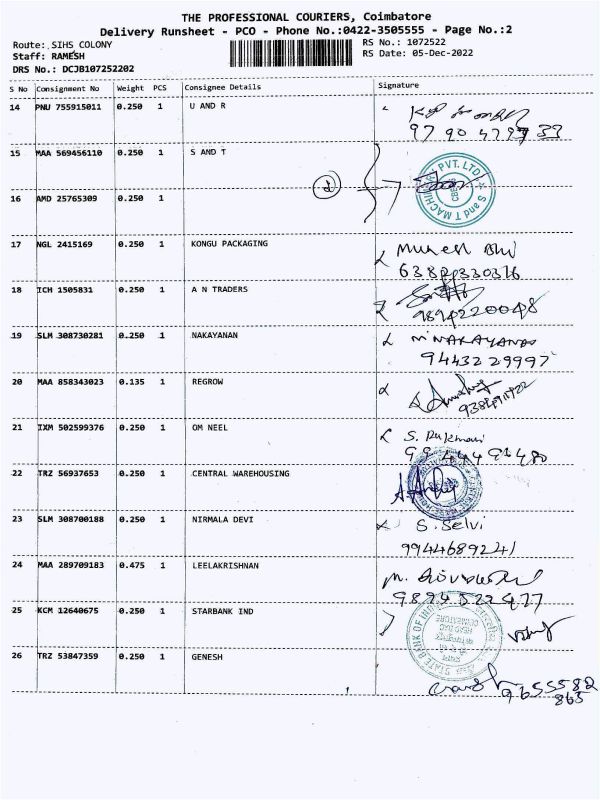 THE PROFESSIONAL COURIERS, Coimbatore
Delivery Runsheet - PCO - Phone No.:0422-3505555 - Page No.:2
Route: SIHS COLONY
RS No.: 1072522
Staff: RAMESH
RS Date: 05-Dec-2022
DRS No.: DCJB107252202
S No Consignment No Weight PCS Consignee Details Signature
14 PNU 755915011 0.250 1 U AND R
15 MAA 569456110 0.250 1 S AND T
S and T MACHI PVT. LTD
16 AMD 25765309 0.250 1
17 NGL 2415169 0.250 1 KONGU PACKAGING
18 ICH 1505831 0.250 1 A N TRADERS
19 SLM 308730281 0.250 1 NAKAYANAN
9443229997
20 MAA 858343023 0.135 1 REGROW
21 IXM 502599376 0.250 1 OM NEEL
22 TRZ 56937653 0.250 1 CENTRAL WAREHOUSING
23 SLM 308700188 0.250 1 NIRMALA DEVI S. Selvi
9944689241
24 MAA 289709183 0.475 1 LEELAKRISHNAN
9894522477
25 KCM 12640675 0.250 1 STARBANK IND
STATE BANK OF INDIA
26 TRZ 53847359 0.250 1 GENESH
9655582
865